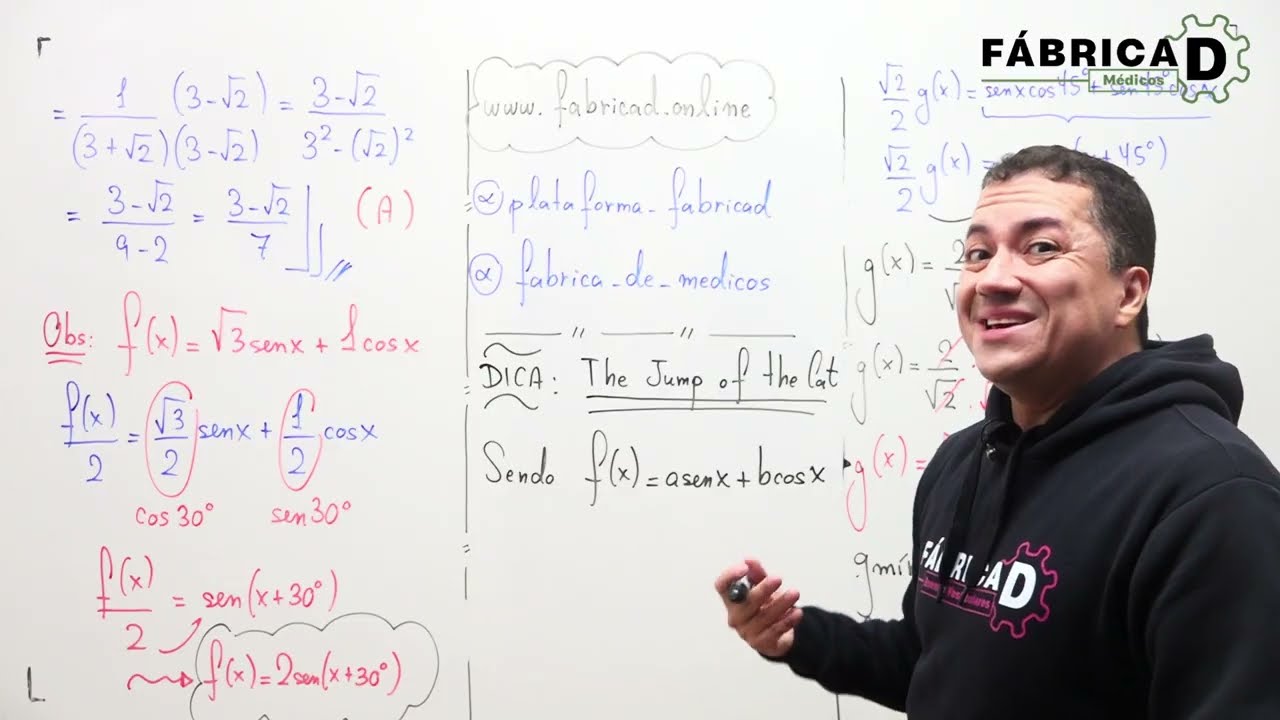 FÁBRICA D
Médicos
= 1/(3+√2) (3-√2)/(3-√2) = 3-√2/3²-(√2)²
= 3-√2/9-2 = 3-√2/7 (A)
Obs: f(x) = √3 senx + 1 cosx
f(x)/2 = √3/2 senx + 1/2 cosx
cos30° sen30°
f(x)/2 = sen(x+30°)
f(x) = 2sen(x+30°)
www.fabricad.online
@plataforma_fabricad
@fabrica_de_medicos
DICA: The Jump of the Cat
Sendo f(x) = asenx + bcosx
√2/2 g(x) = senxcos45° + sen45°cosx
√2/2 g(x) = +45°)
g(x) = 2/√
g(x) = 2/√2 .
g(x) =
gmín
FÁBRICA D